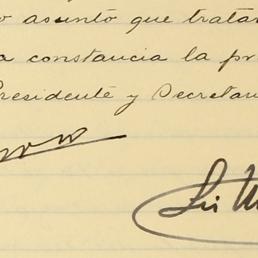 o asunto que tratar
a constancia la pr
residente y Secretar